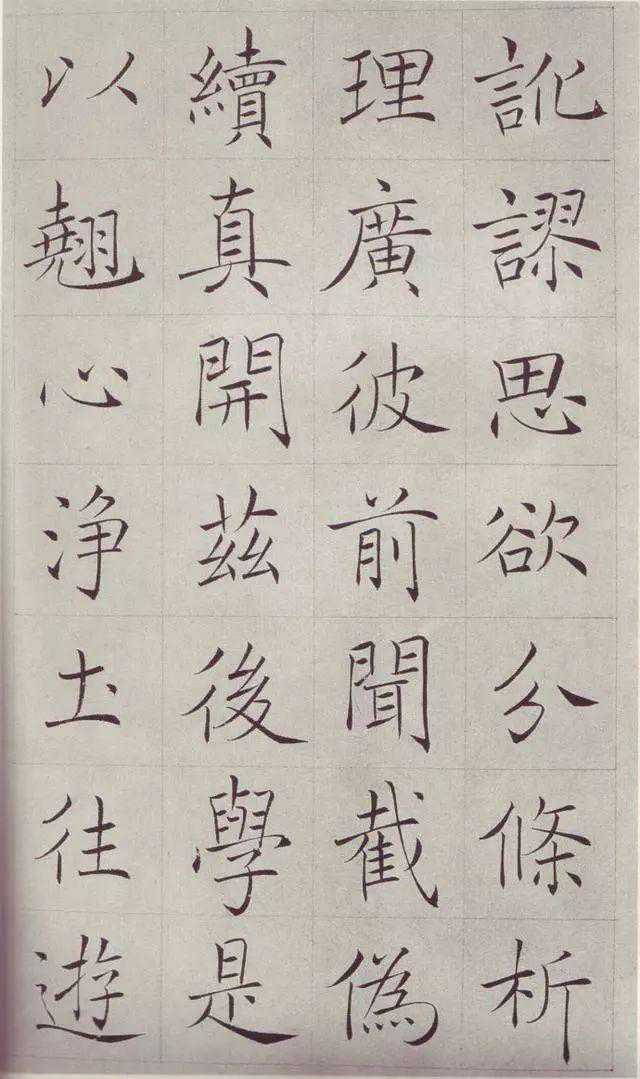 訛謬思欲分條析
理廣彼前聞截偽
續真開茲後學是
以翹心浄土往遊